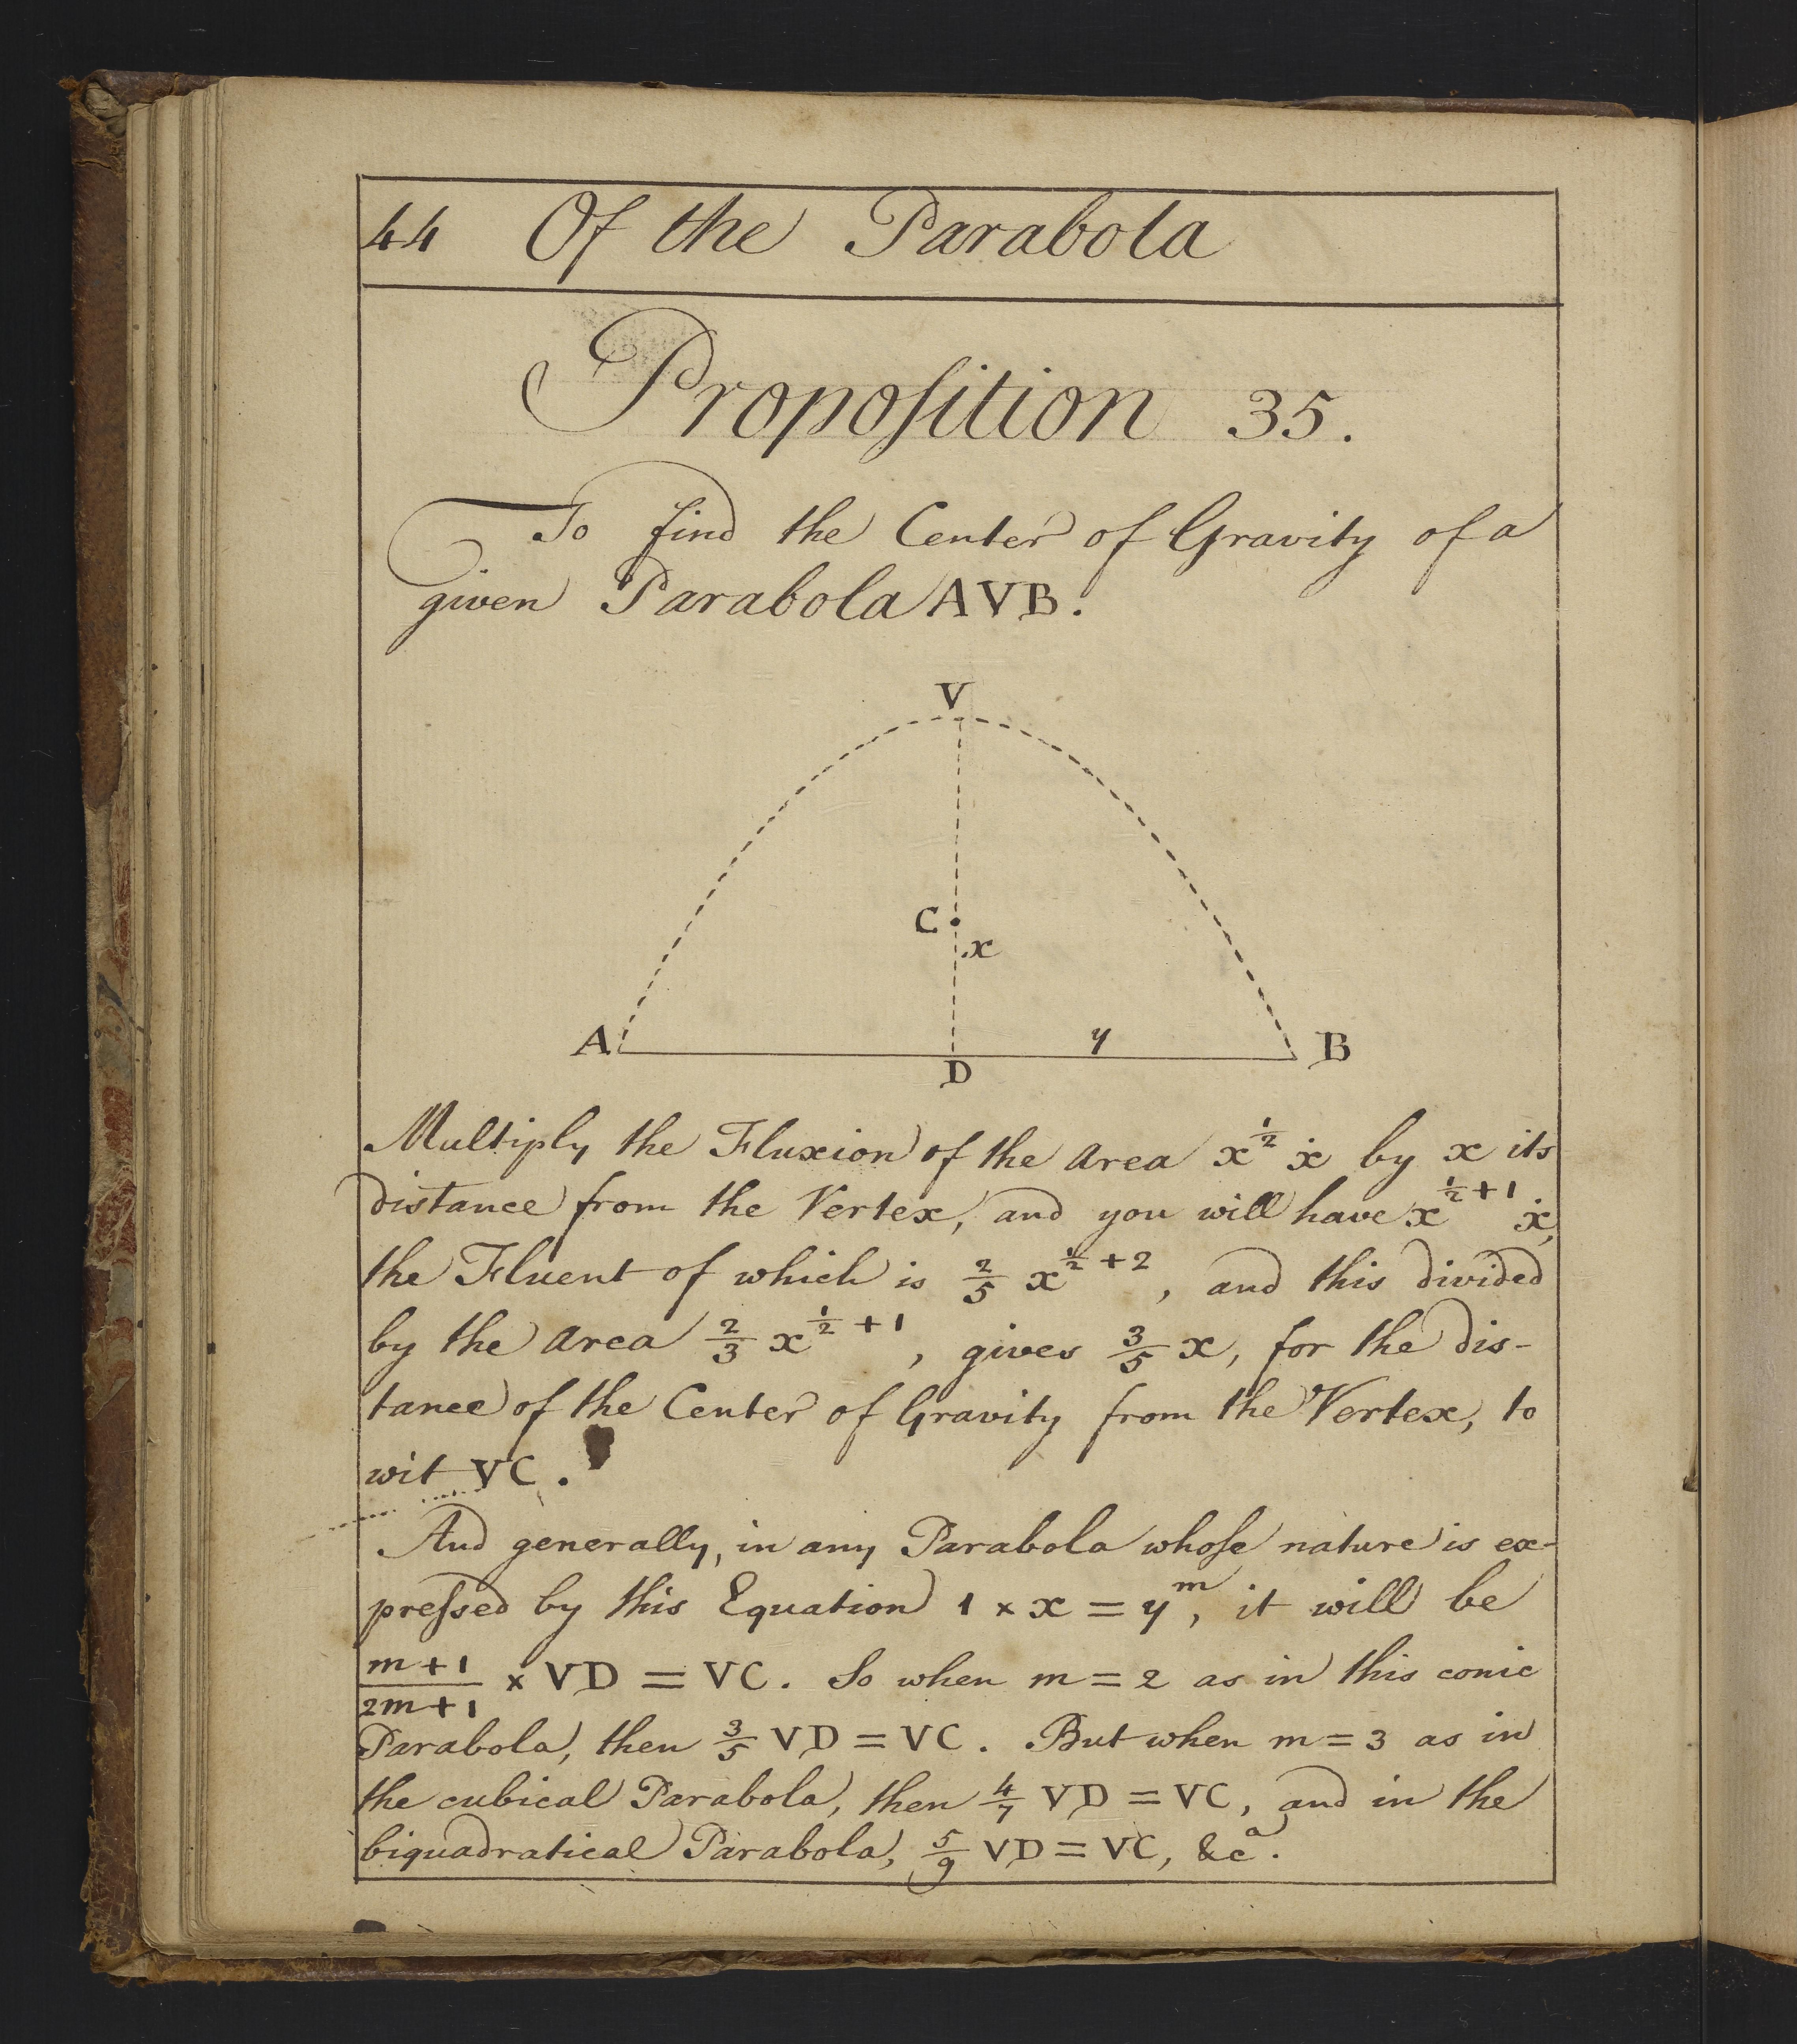 44 Of the Parabola
Propoſition 35.
To find the Center of Gravity of a
given Parabola AVB.
V
C
x
A
y
B
D
Multiply the Fluxion of the area x^½ ẋ by x its
distance from the Vertex, and you will have x^(½+1) ẋ,
the Fluent of which is 2/5 x^(½+2), and this divided
by the area 2/3 x^(½+1), gives 3/5 x, for the dis-
tance of the Center of Gravity from the Vertex, to
wit VC.
And generally, in any Parabola whoſe nature is ex-
preſsed by this Equation 1 × x = y^m, it will be
(m+1)/(2m+1) × VD = VC. So when m = 2 as in this conic
Parabola, then 3/5 VD = VC. But when m = 3 as in
the cubical Parabola, then 4/7 VD = VC, and in the
biquadratical Parabola, 5/9 VD = VC, &c^a.